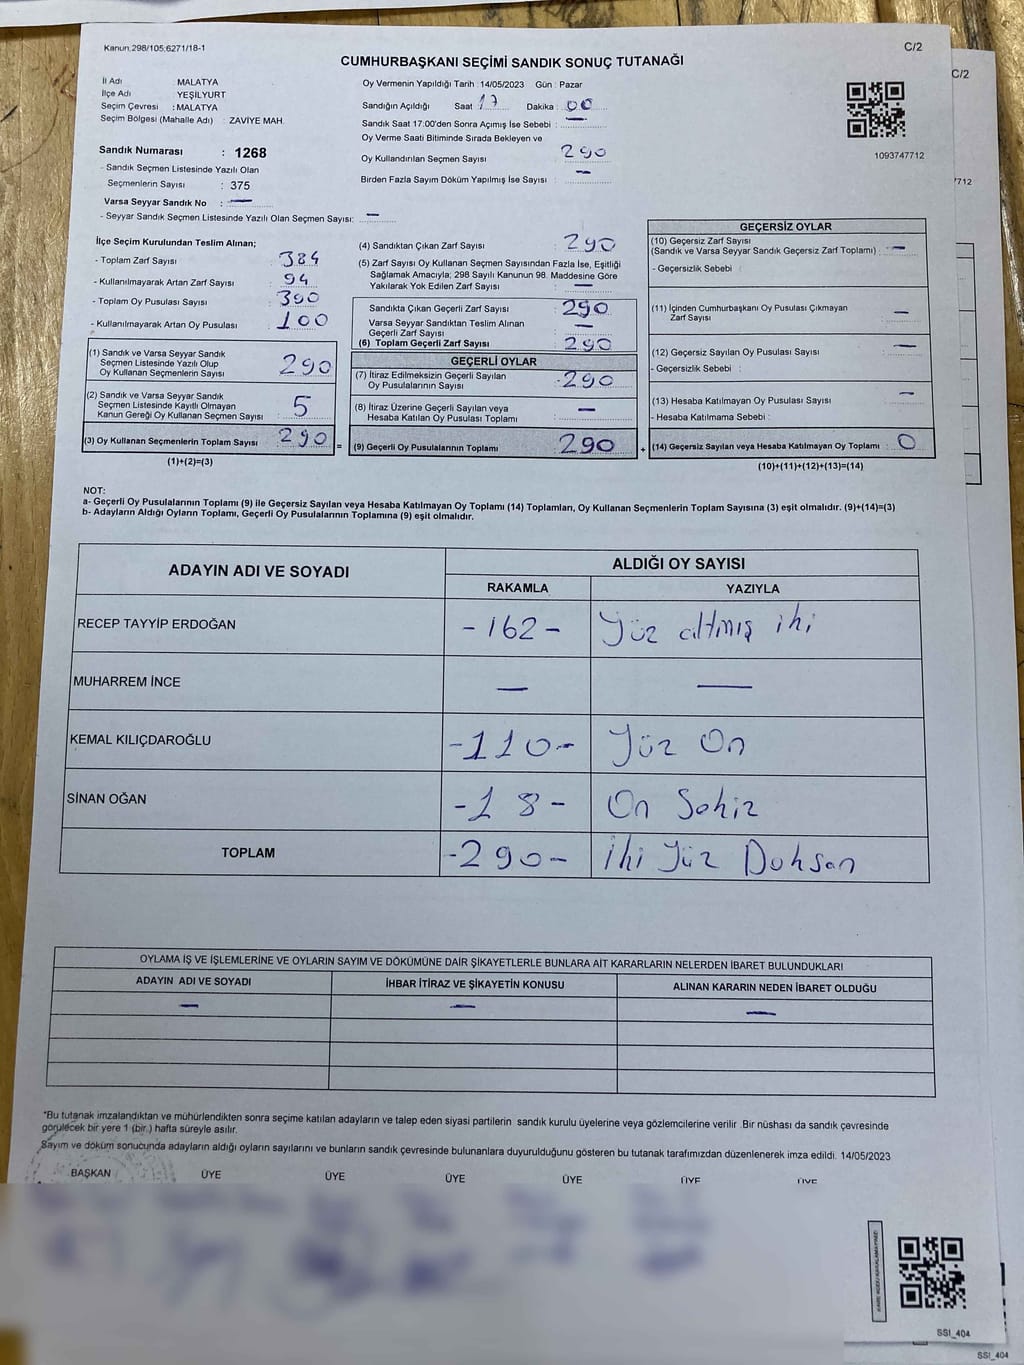 Kanun.298/105;6271/18-1
C/2
CUMHURBAŞKANI SEÇİMİ SANDIK SONUÇ TUTANAĞI
C/2
İl Adı : MALATYA
İlçe Adı : YEŞİLYURT
Seçim Çevresi : MALATYA
Seçim Bölgesi (Mahalle Adı) : ZAVİYE MAH.
Oy Vermenin Yapıldığı Tarih : 14/05/2023 Gün : Pazar
Sandığın Açıldığı Saat 17 Dakika : 00
Sandık Saat 17:00'den Sonra Açımış İse Sebebi : —
Oy Verme Saati Bitiminde Sırada Bekleyen ve
Oy Kullandırılan Seçmen Sayısı : 290
Birden Fazla Sayım Döküm Yapılmış İse Sayısı : —
1093747712
7712
Sandık Numarası : 1268
- Sandık Seçmen Listesinde Yazılı Olan
Seçmenlerin Sayısı : 375
Varsa Seyyar Sandık No : —
- Seyyar Sandık Seçmen Listesinde Yazılı Olan Seçmen Sayısı: —
İlçe Seçim Kurulundan Teslim Alınan;
- Toplam Zarf Sayısı : 384
- Kullanılmayarak Artan Zarf Sayısı : 94
- Toplam Oy Pusulası Sayısı : 390
- Kullanılmayarak Artan Oy Pusulası : 100
(1) Sandık ve Varsa Seyyar Sandık
Seçmen Listesinde Yazılı Olup
Oy Kullanan Seçmenlerin Sayısı : 290
(2) Sandık ve Varsa Seyyar Sandık
Seçmen Listesinde Kayıtlı Olmayan
Kanun Gereği Oy Kullanan Seçmen Sayısı : 5
(3) Oy Kullanan Seçmenlerin Toplam Sayısı : 290 =
(1)+(2)=(3)
(4) Sandıktan Çıkan Zarf Sayısı : 290
(5) Zarf Sayısı Oy Kullanan Seçmen Sayısından Fazla İse, Eşitliği
Sağlamak Amacıyla; 298 Sayılı Kanunun 98. Maddesine Göre
Yakılarak Yok Edilen Zarf Sayısı : —
Sandıkta Çıkan Geçerli Zarf Sayısı : 290
Varsa Seyyar Sandıktan Teslim Alınan
Geçerli Zarf Sayısı : —
(6) Toplam Geçerli Zarf Sayısı : 290
GEÇERLİ OYLAR
(7) İtiraz Edilmeksizin Geçerli Sayılan
Oy Pusulalarının Sayısı : 290
(8) İtiraz Üzerine Geçerli Sayılan veya
Hesaba Katılan Oy Pusulası Toplamı : —
(9) Geçerli Oy Pusulalarının Toplamı : 290 +
GEÇERSİZ OYLAR
(10) Geçersiz Zarf Sayısı
(Sandık ve Varsa Seyyar Sandık Geçersiz Zarf Toplamı) : —
- Geçersizlik Sebebi :
(11) İçinden Cumhurbaşkanı Oy Pusulası Çıkmayan
Zarf Sayısı : —
(12) Geçersiz Sayılan Oy Pusulası Sayısı : —
- Geçersizlik Sebebi :
(13) Hesaba Katılmayan Oy Pusulası Sayısı : —
- Hesaba Katılmama Sebebi :
(14) Geçersiz Sayılan veya Hesaba Katılmayan Oy Toplamı : 0
(10)+(11)+(12)+(13)=(14)
NOT:
a- Geçerli Oy Pusulalarının Toplamı (9) ile Geçersiz Sayılan veya Hesaba Katılmayan Oy Toplamı (14) Toplamları, Oy Kullanan Seçmenlerin Toplam Sayısına (3) eşit olmalıdır. (9)+(14)=(3)
b- Adayların Aldığı Oyların Toplamı, Geçerli Oy Pusulalarının Toplamına (9) eşit olmalıdır.
ADAYIN ADI VE SOYADI
ALDIĞI OY SAYISI
RAKAMLA YAZIYLA
RECEP TAYYİP ERDOĞAN -162- Yüz altmış iki
MUHARREM İNCE — —
KEMAL KILIÇDAROĞLU -110- Yüz On
SİNAN OĞAN -18- On Sekiz
TOPLAM -290- İki Yüz Doksan
OYLAMA İŞ VE İŞLEMLERİNE VE OYLARIN SAYIM VE DÖKÜMÜNE DAİR ŞİKAYETLERLE BUNLARA AİT KARARLARIN NELERDEN İBARET BULUNDUKLARI
ADAYIN ADI VE SOYADI İHBAR İTİRAZ VE ŞİKAYETİN KONUSU ALINAN KARARIN NEDEN İBARET OLDUĞU
— — —
*Bu tutanak imzalandıktan ve mühürlendikten sonra seçime katılan adayların ve talep eden siyasi partilerin sandık kurulu üyelerine veya gözlemcilerine verilir .Bir nüshası da sandık çevresinde
görülecek bir yere 1 (bir ) hafta süreyle asılır.
Sayım ve döküm sonucunda adayların aldığı oyların sayılarını ve bunların sandık çevresinde bulunanlara duyurulduğunu gösteren bu tutanak tarafımızdan düzenlenerek imza edildi. 14/05/2023
BAŞKAN ÜYE ÜYE ÜYE ÜYE ÜYE ÜYE
SSI_404
SSI_404